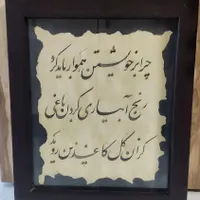 چرا بر خویشتن هموار باید کرد
رنج آبیاری کردن باغی
کزان گل کاغذین روید